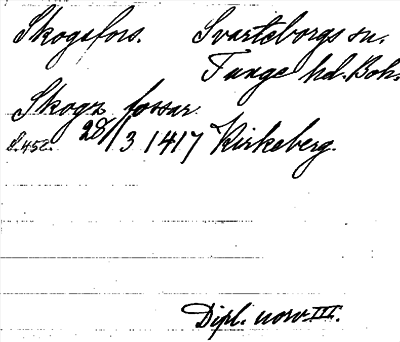 Skogsfors. Svarteborgs sn.
Tunge hd. Boh.
Skogn fossar
S. 452. 28/3 1417 Kirkeberg.
Dipl. norv. III.